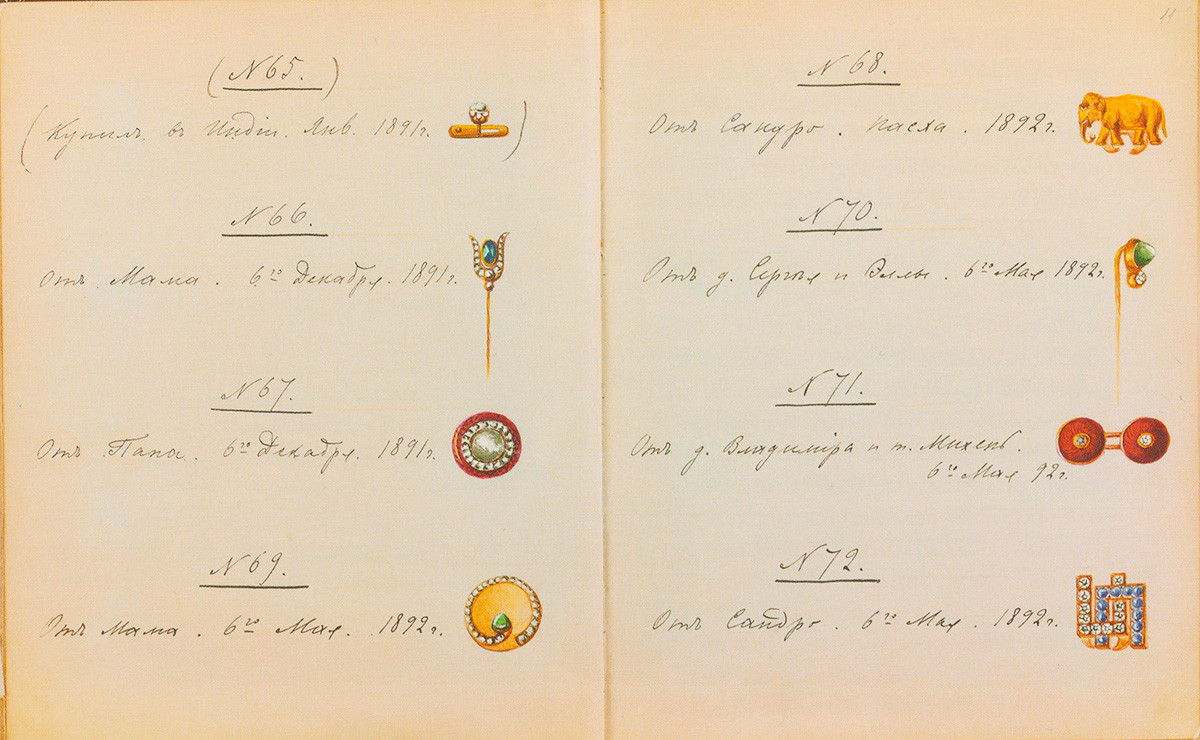 (N 65.)
(Купилъ въ Индіи. Янв. 1891 г.)
N 66.
Отъ Мама. 6го Декабря. 1891 г.
N 67.
Отъ Папа. 6го Декабря. 1891 г.
N 69.
Отъ Мама. 6го Мая. 1892 г.
11
N 68.
Отъ Сандро. Пасха. 1892 г.
N 70.
Отъ д. Сергѣя и Эллы. 6го Мая 1892 г.
N 71.
Отъ д. Владиміра и т. Михень.
6го Мая 92 г.
N 72.
Отъ Сандро. 6го Мая. 1892 г.